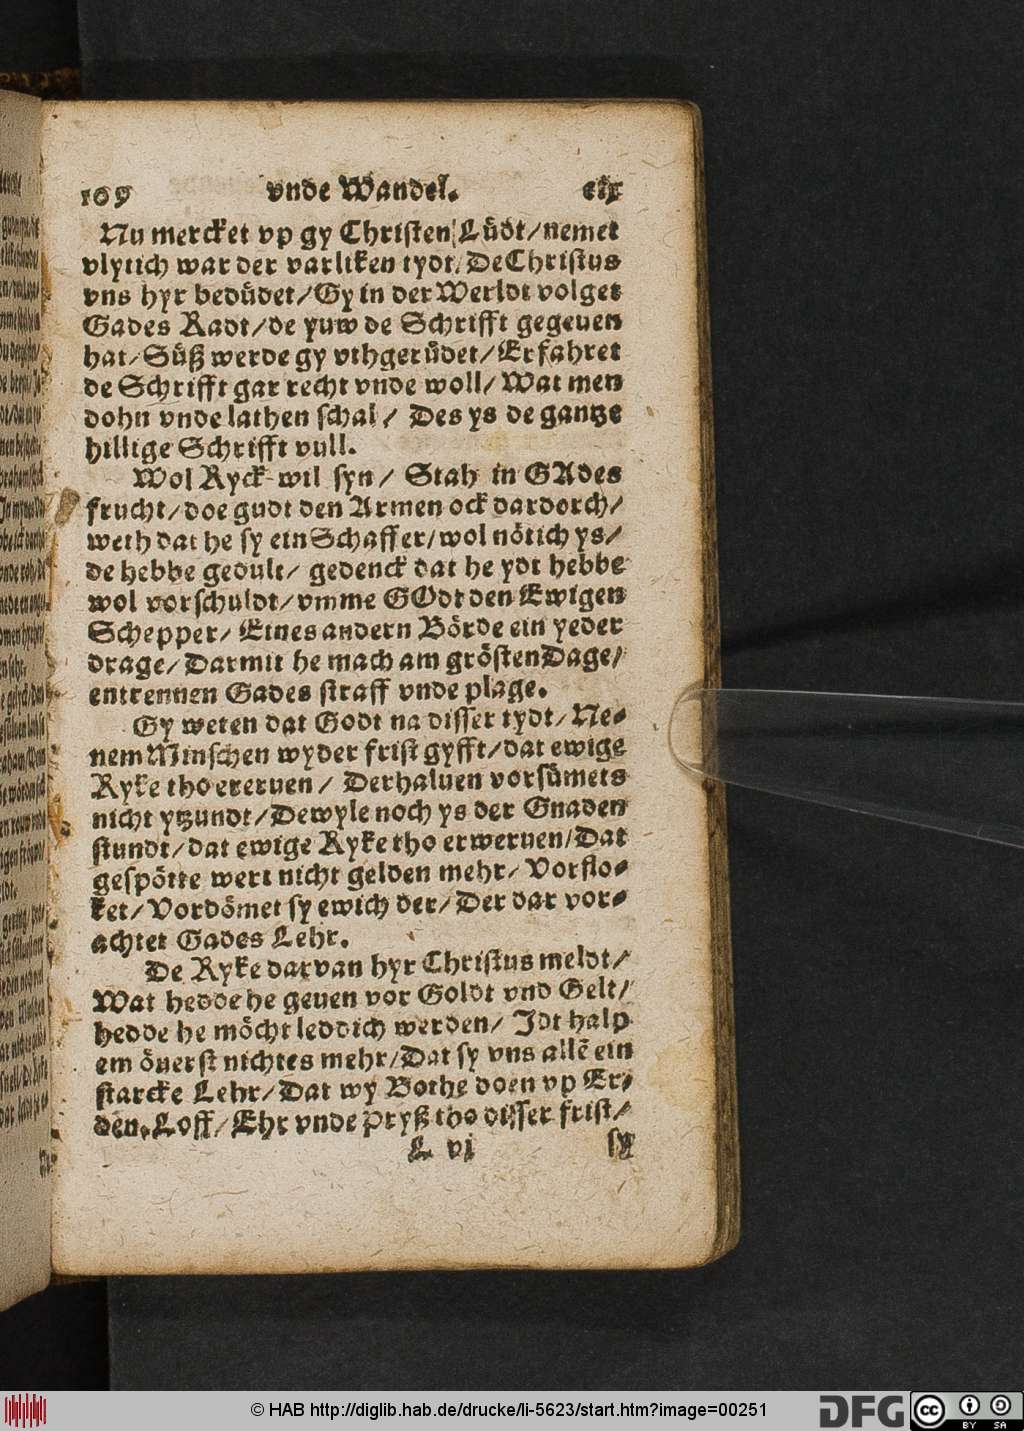 109 vnde Wandel. cix
Nu mercket vp gy Christen Lüdt/nemet
vlytich war der varliken tydt/DeChristus
vns hyr bedüdet/Gy in der Werldt volget
Gades Radt/de yuw de Schrifft gegeuen
hat/Süß werde gy vthgerüdet/Erfahret
de Schrifft gar recht vnde woll/Wat men
dohn vnde lathen schal/ Des ys de gantze
hillige Schrifft vull.
Wol Ryck wil syn/ Stah in GAdes
frucht/doe gudt den Armen ock dardorch/
weth dat he sy ein Schaffer/wol nötich ys/
de hebbe gedult/ gedenck dat he ydt hebbe
wol vorschuldt/vmme GOdt den Ewigen
Schepper/ Eines andern Börde ein yeder
drage/Darmit he mach am grösten Dage/
entrennen Gades straff vnde plage.
Gy weten dat Godt na disser tydt/Ne-
nem Minschen wyder frist gyfft/dat ewige
Ryke thoereruen/ Derhaluen vorsümets
nicht ytzundt/Dewyle noch ys der Gnaden
stundt/dat ewige Ryke tho erweruen/Dat
gespötte wert nicht gelden mehr/ Vorflo-
ket/Vordömet sy ewich der/Der dar vor-
achtet Gades Lehr.
De Ryke darvan hyr Christus meldt/
Wat hedde he geuen vor Goldt vnd Gelt/
hedde he möcht leddich werden/ Jdt halp
em öuerst nichtes mehr/Dat sy vns allē ein
starcke Lehr/Dat wy Bothe doen vp Er-
den. Loff/Ehr vnde Pryß tho disser frist/
L vj sy
© HAB http://diglib.hab.de/drucke/li-5623/start.htm?image=00251
DFG
cc
BY SA